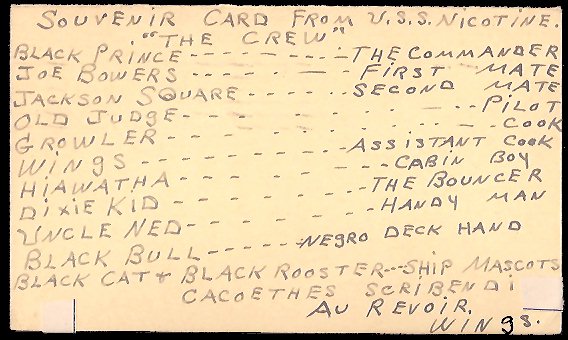 SOUVENIR CARD FROM U.S.S. NICOTINE.
"THE CREW"
BLACK PRINCE --------- THE COMMANDER
JOE BOWERS ------- FIRST MATE
JACKSON SQUARE ------ SECOND MATE
OLD JUDGE ------------ PILOT
GROWLER ------------ COOK
WINGS --------- ASSISTANT COOK
HIAWATHA --------- CABIN BOY
DIXIE KID --------- THE BOUNCER
UNCLE NED --------- HANDY MAN
BLACK BULL ------ NEGRO DECK HAND
BLACK CAT + BLACK ROOSTER --- SHIP MASCOTS
CACOETHES SCRIBENDI
AU REVOIR.
WINGS.